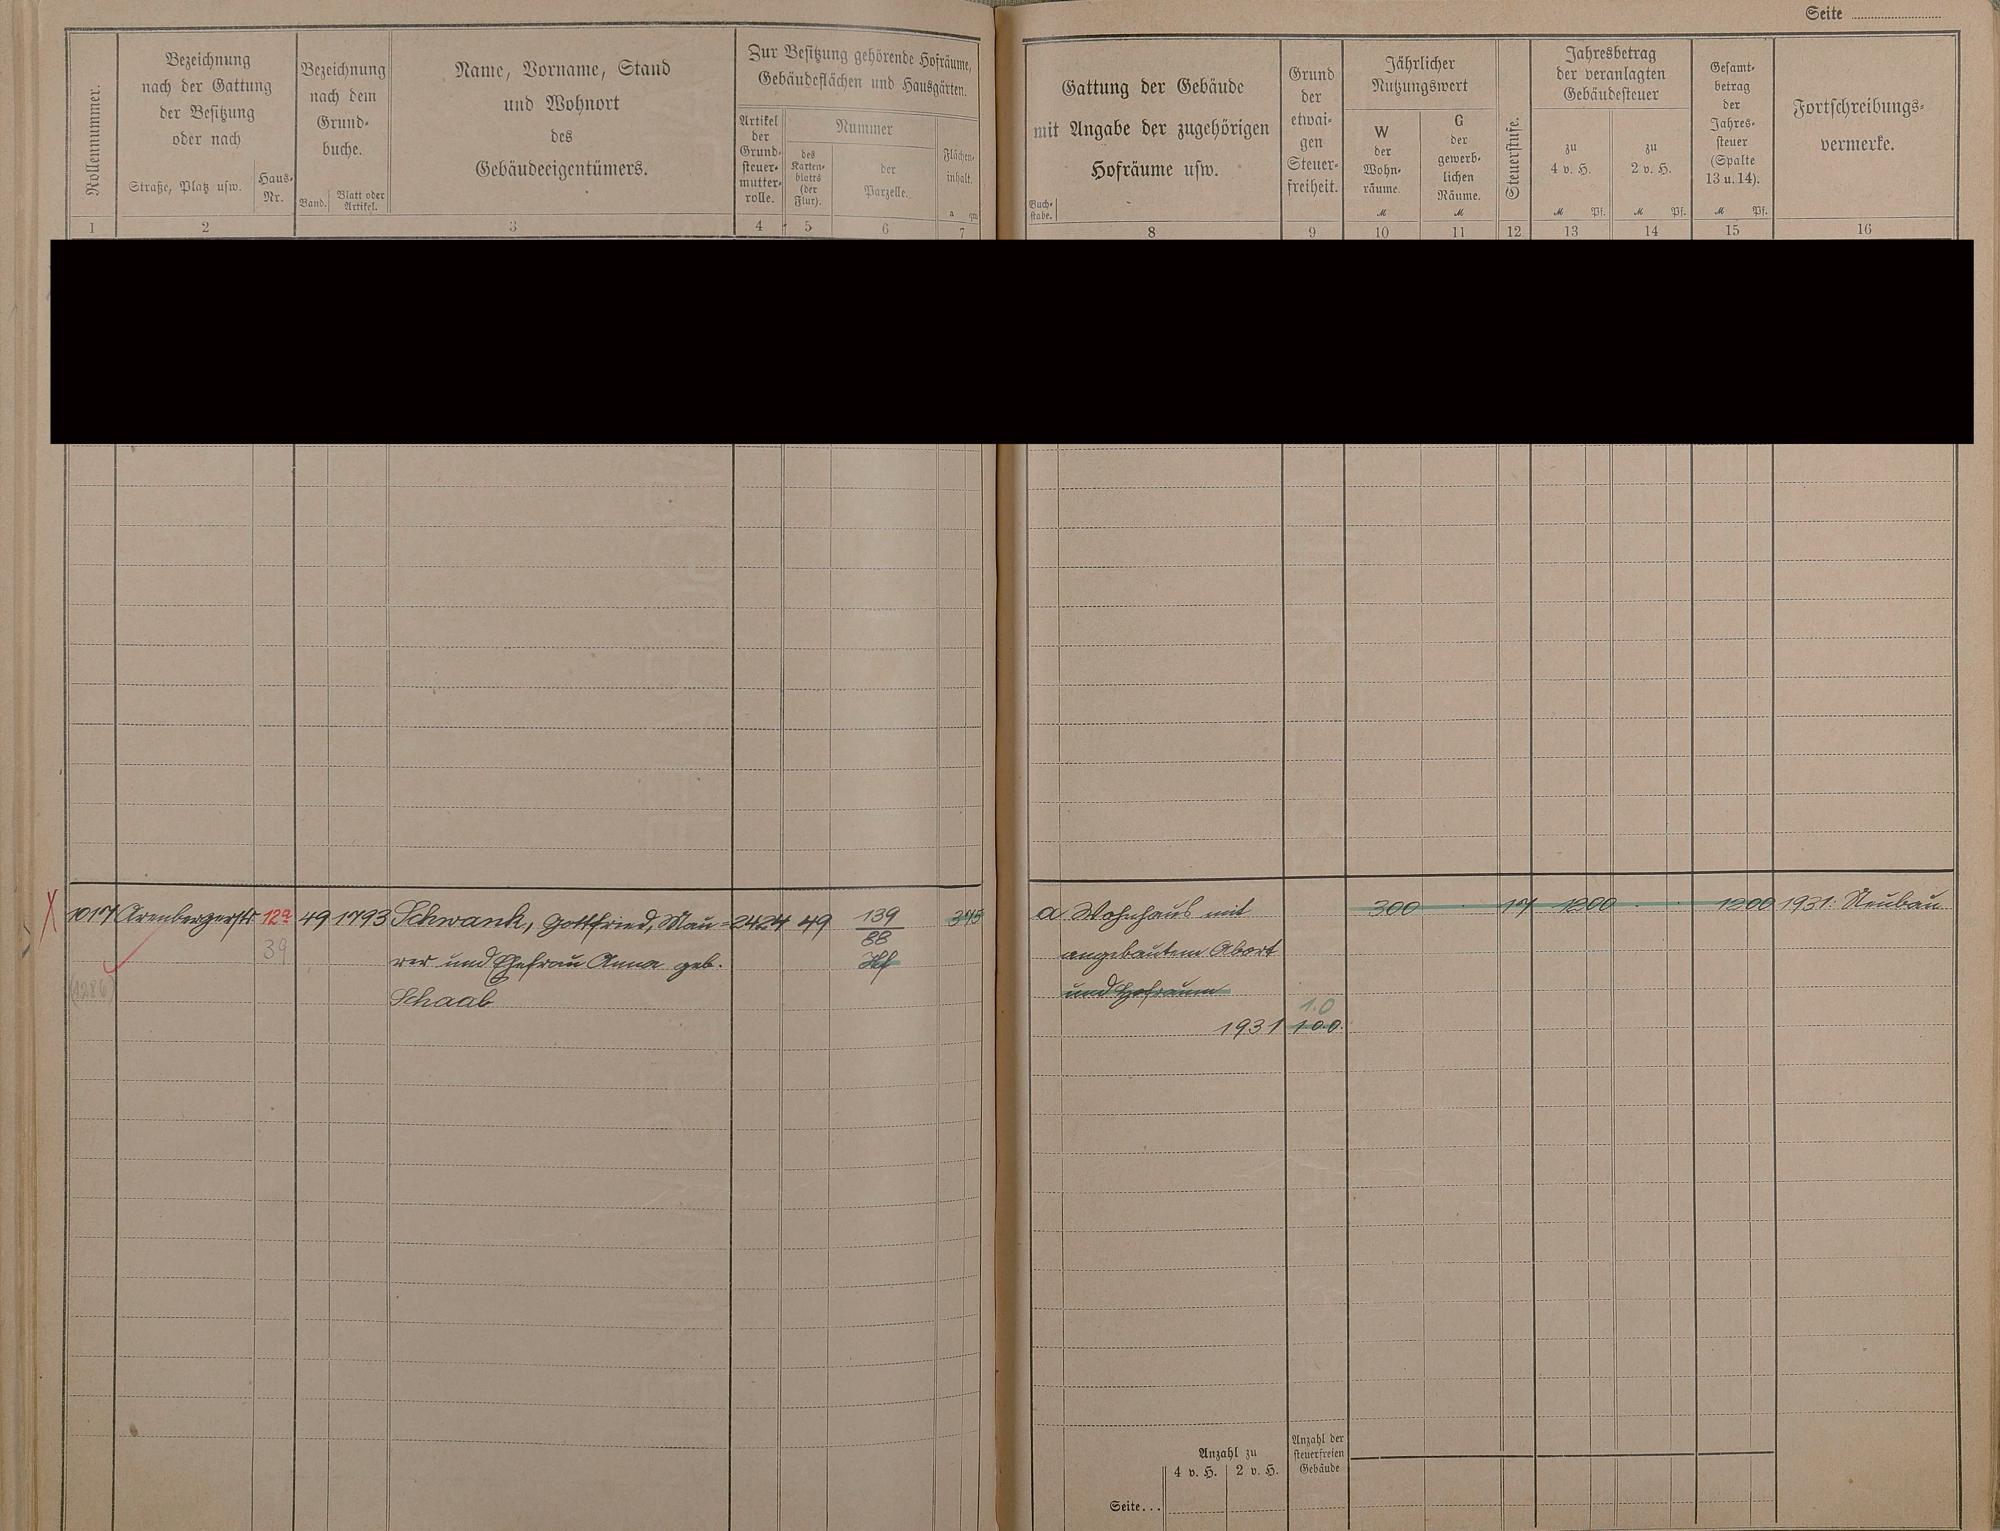 Seite
Rollennummer.
Bezeichnung
nach der Gattung
der Besitzung
oder nach
Straße, Platz usw.
Haus-
Nr.
Bezeichnung
nach dem
Grund-
buche.
Band.
Blatt oder
Artikel.
Name, Vorname, Stand
und Wohnort
des
Gebäudeeigentümers.
Zur Besitzung gehörende Hofräume,
Gebäudeflächen und Hausgärten.
Artikel
der
Grund-
steuer-
mutter-
rolle.
Nummer
des
Karten-
blatts
(der
Flur).
der
Parzelle.
Flächen-
inhalt.
a qm
Gattung der Gebäude
mit Angabe der zugehörigen
Hofräume usw.
Buch-
stabe.
Grund
der
etwai-
gen
Steuer-
freiheit.
Jährlicher
Nutzungswert
W
der
Wohn-
räume.
M
G
der
gewerb-
lichen
Räume.
M
Steuerstufe.
Jahresbetrag
der veranlagten
Gebäudesteuer
zu
4 v. H.
M Pf.
zu
2 v. H.
M Pf.
Gesamt-
betrag
der
Jahres-
steuer
(Spalte
13 u. 14).
M Pf.
Fortschreibungs-
vermerke.
1 2 3 4 5 6 7 8 9 10 11 12 13 14 15 16
1017 Arenbergerstr. 12a 49 1793 Schwank, Gottfried, Mau- 2424 49 139 375 a Wohnhaus mit 300 17 1200 1200 1931: Neubau
39 88
rer und Ehefrau Anna geb. Hf angebautem Abort
(1286) Schaab und Hofraum
1.0
1931 100.
Anzahl zu
4 v. H. 2 v. H.
Anzahl der
steuerfreien
Gebäude
Seite...